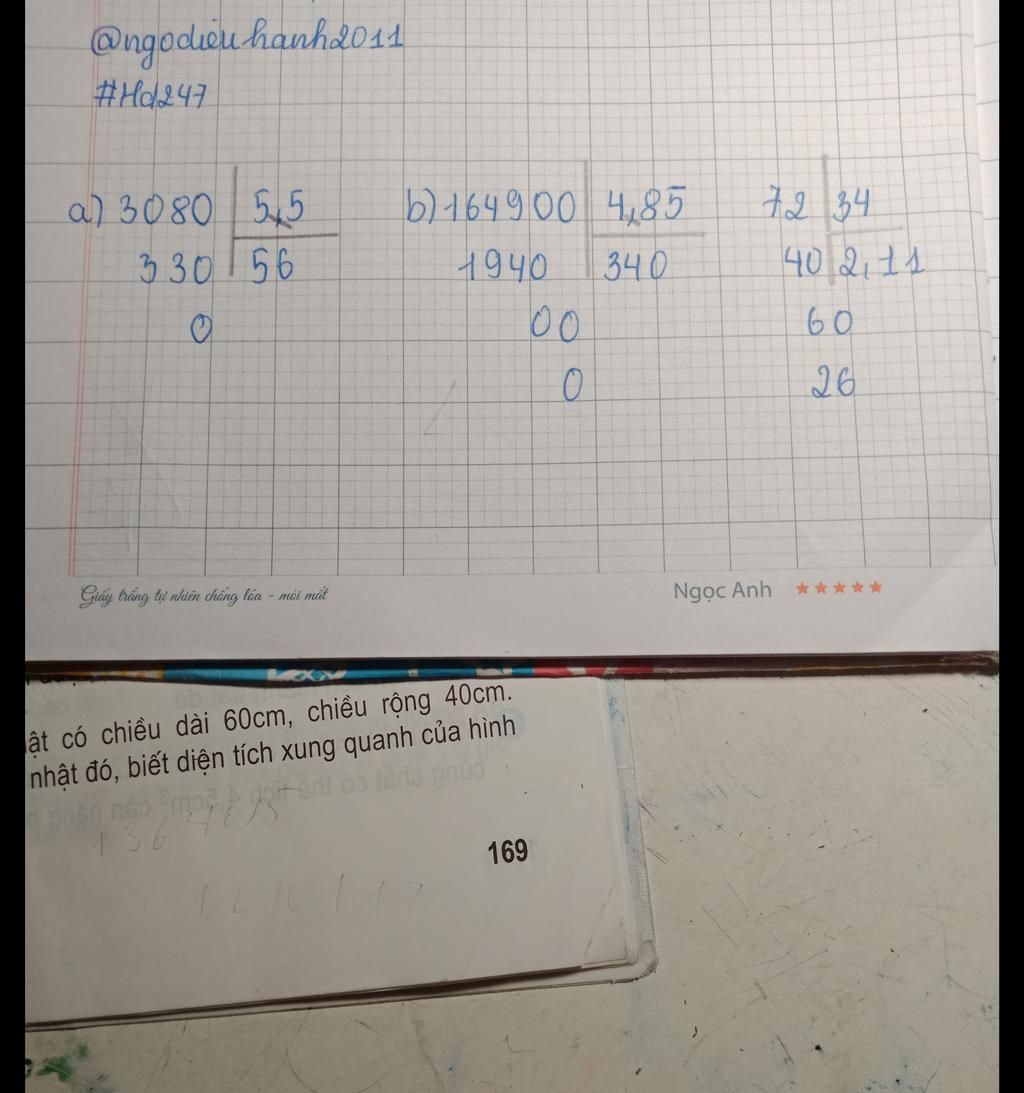 @ngodieuhanh2011
#Hd247
a) 3080 5,5
330 56
0
b) 164900 4,85
1940 340
00
0
72 34
40 2,11
60
26
Giấy trắng tự nhiên chống lóa - mỏi mắt
Ngọc Anh ★★★★★
ật có chiều dài 60cm, chiều rộng 40cm.
nhật đó, biết diện tích xung quanh của hình
169